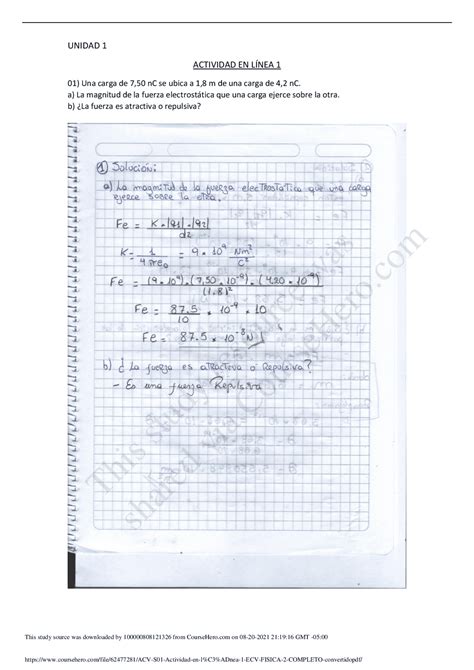 UNIDAD 1
ACTIVIDAD EN LÍNEA 1
01) Una carga de 7,50 nC se ubica a 1,8 m de una carga de 4,2 nC.
a) La magnitud de la fuerza electrostática que una carga ejerce sobre la otra.
b) ¿La fuerza es atractiva o repulsiva?
① Solución:
a) La magnitud de la fuerza electrostática que una carga
ejerce sobre la otra.
Fe = K·|q1|·|q2|
d2
K = 1 = 9 · 10⁹ Nm²
4πε0 C²
Fe = (9·10⁹)·(7,50·10⁻⁹)·(4,20·10⁻⁹)
(1.8)²
Fe = 87.5 · 10⁻⁹ · 10
10
Fe = 87.5 · 10⁻⁸ N
b) ¿ La fuerza es atractiva o Repulsiva?
- Es una fuerza Repulsiva
This study source was
shared via CourseHero.com
This study source was downloaded by 100000808121326 from CourseHero.com on 08-20-2021 21:19:16 GMT -05:00
https://www.coursehero.com/file/62477281/ACV-S01-Actividad-en-l%C3%ADnea-1-ECV-FISICA-2-COMPLETO-convertidopdf/